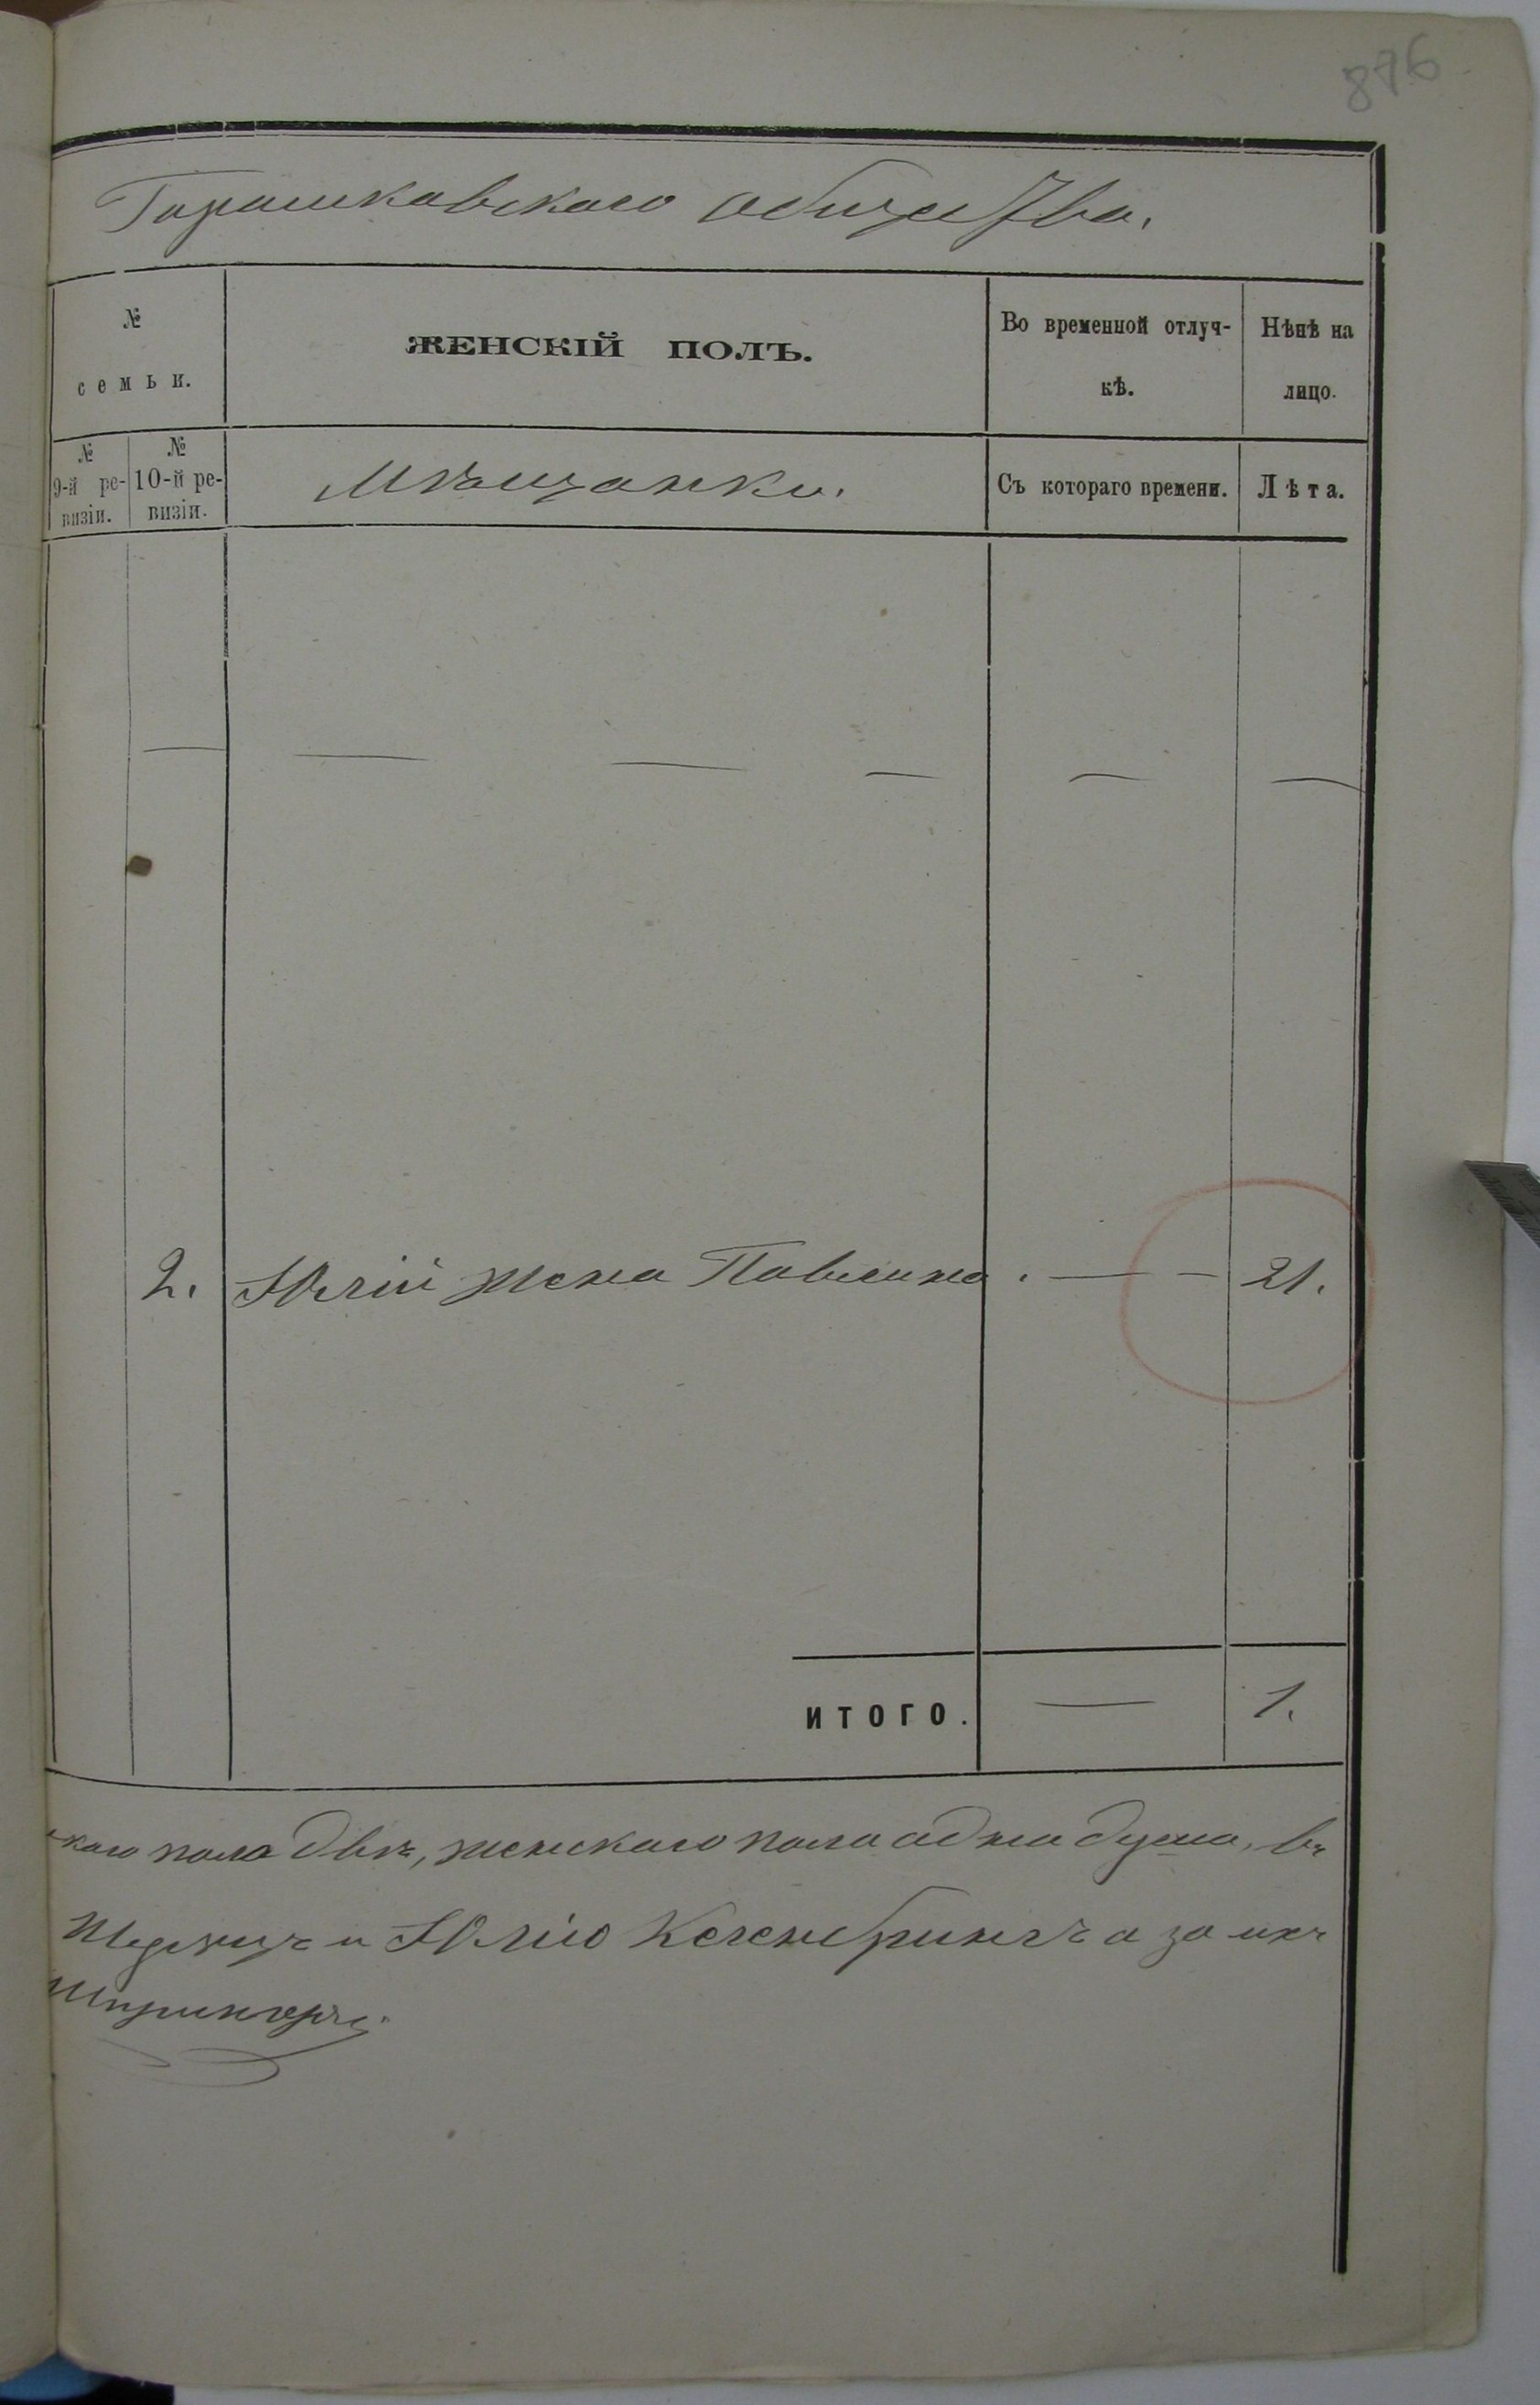 876
Горошковскаго общества.
№
семьи.
ЖЕНСКІЙ ПОЛЪ.
Во временной отлуч-
кѣ.
Нѣнѣ на
лицо.
№
9-й ре-
визіи.
№
10-й ре-
визіи.
Мѣщанки.
Съ котораго времени.
Лѣта.
— — — — — —
2. Юлій жена Павлина. — — 21.
ИТОГО. — 1.
каго пола двѣ, женскаго пола одна душа, въ
и Юлію а за ихъ